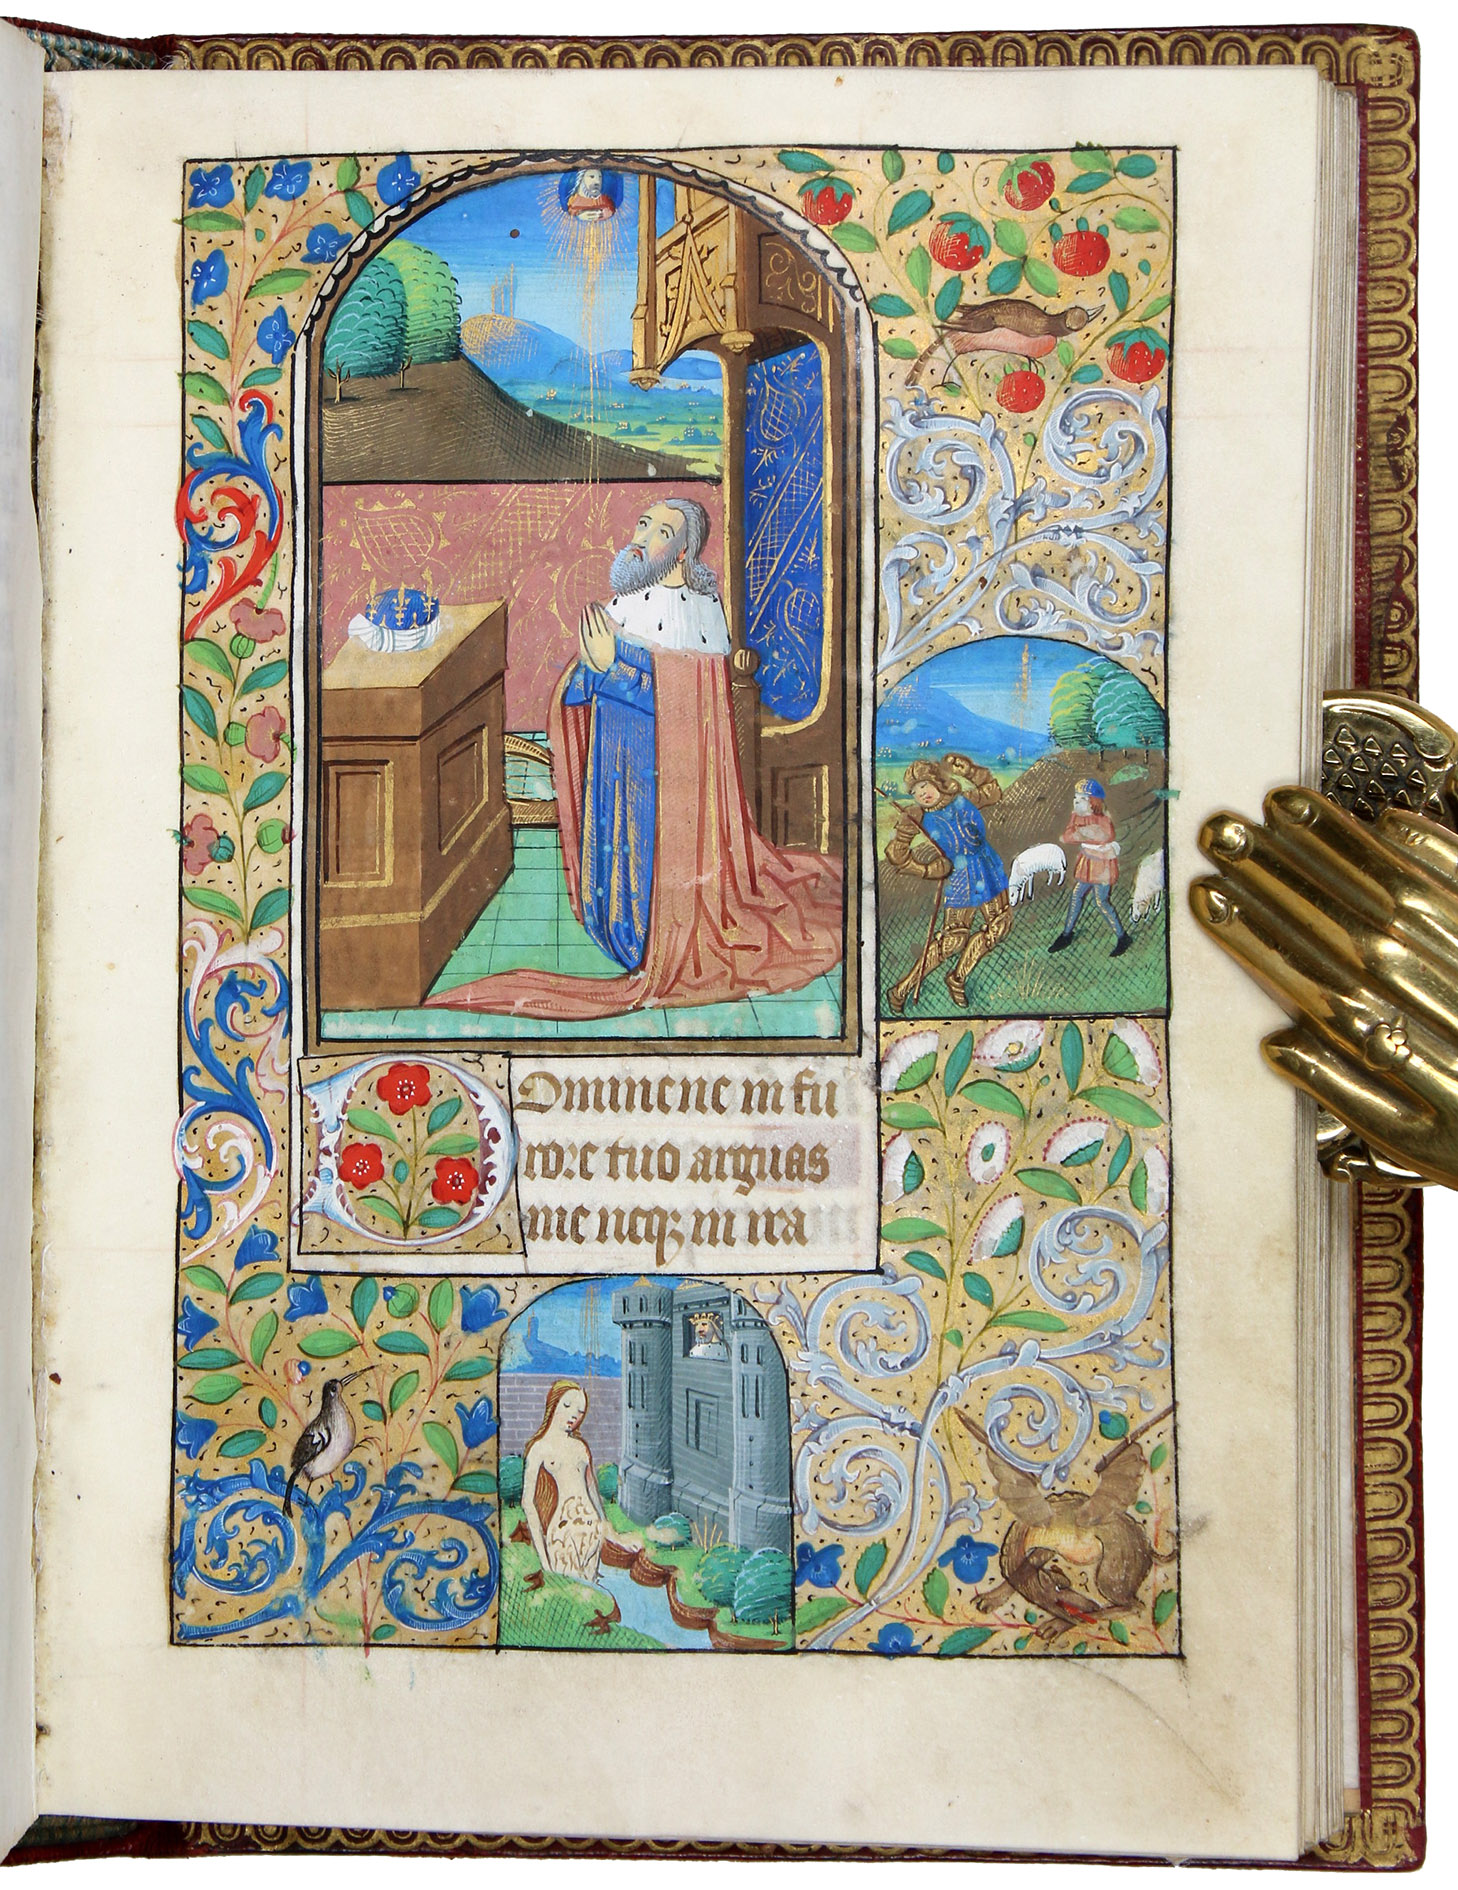 Domine ne in fu
rore tuo arguas
me neqȝ in ira